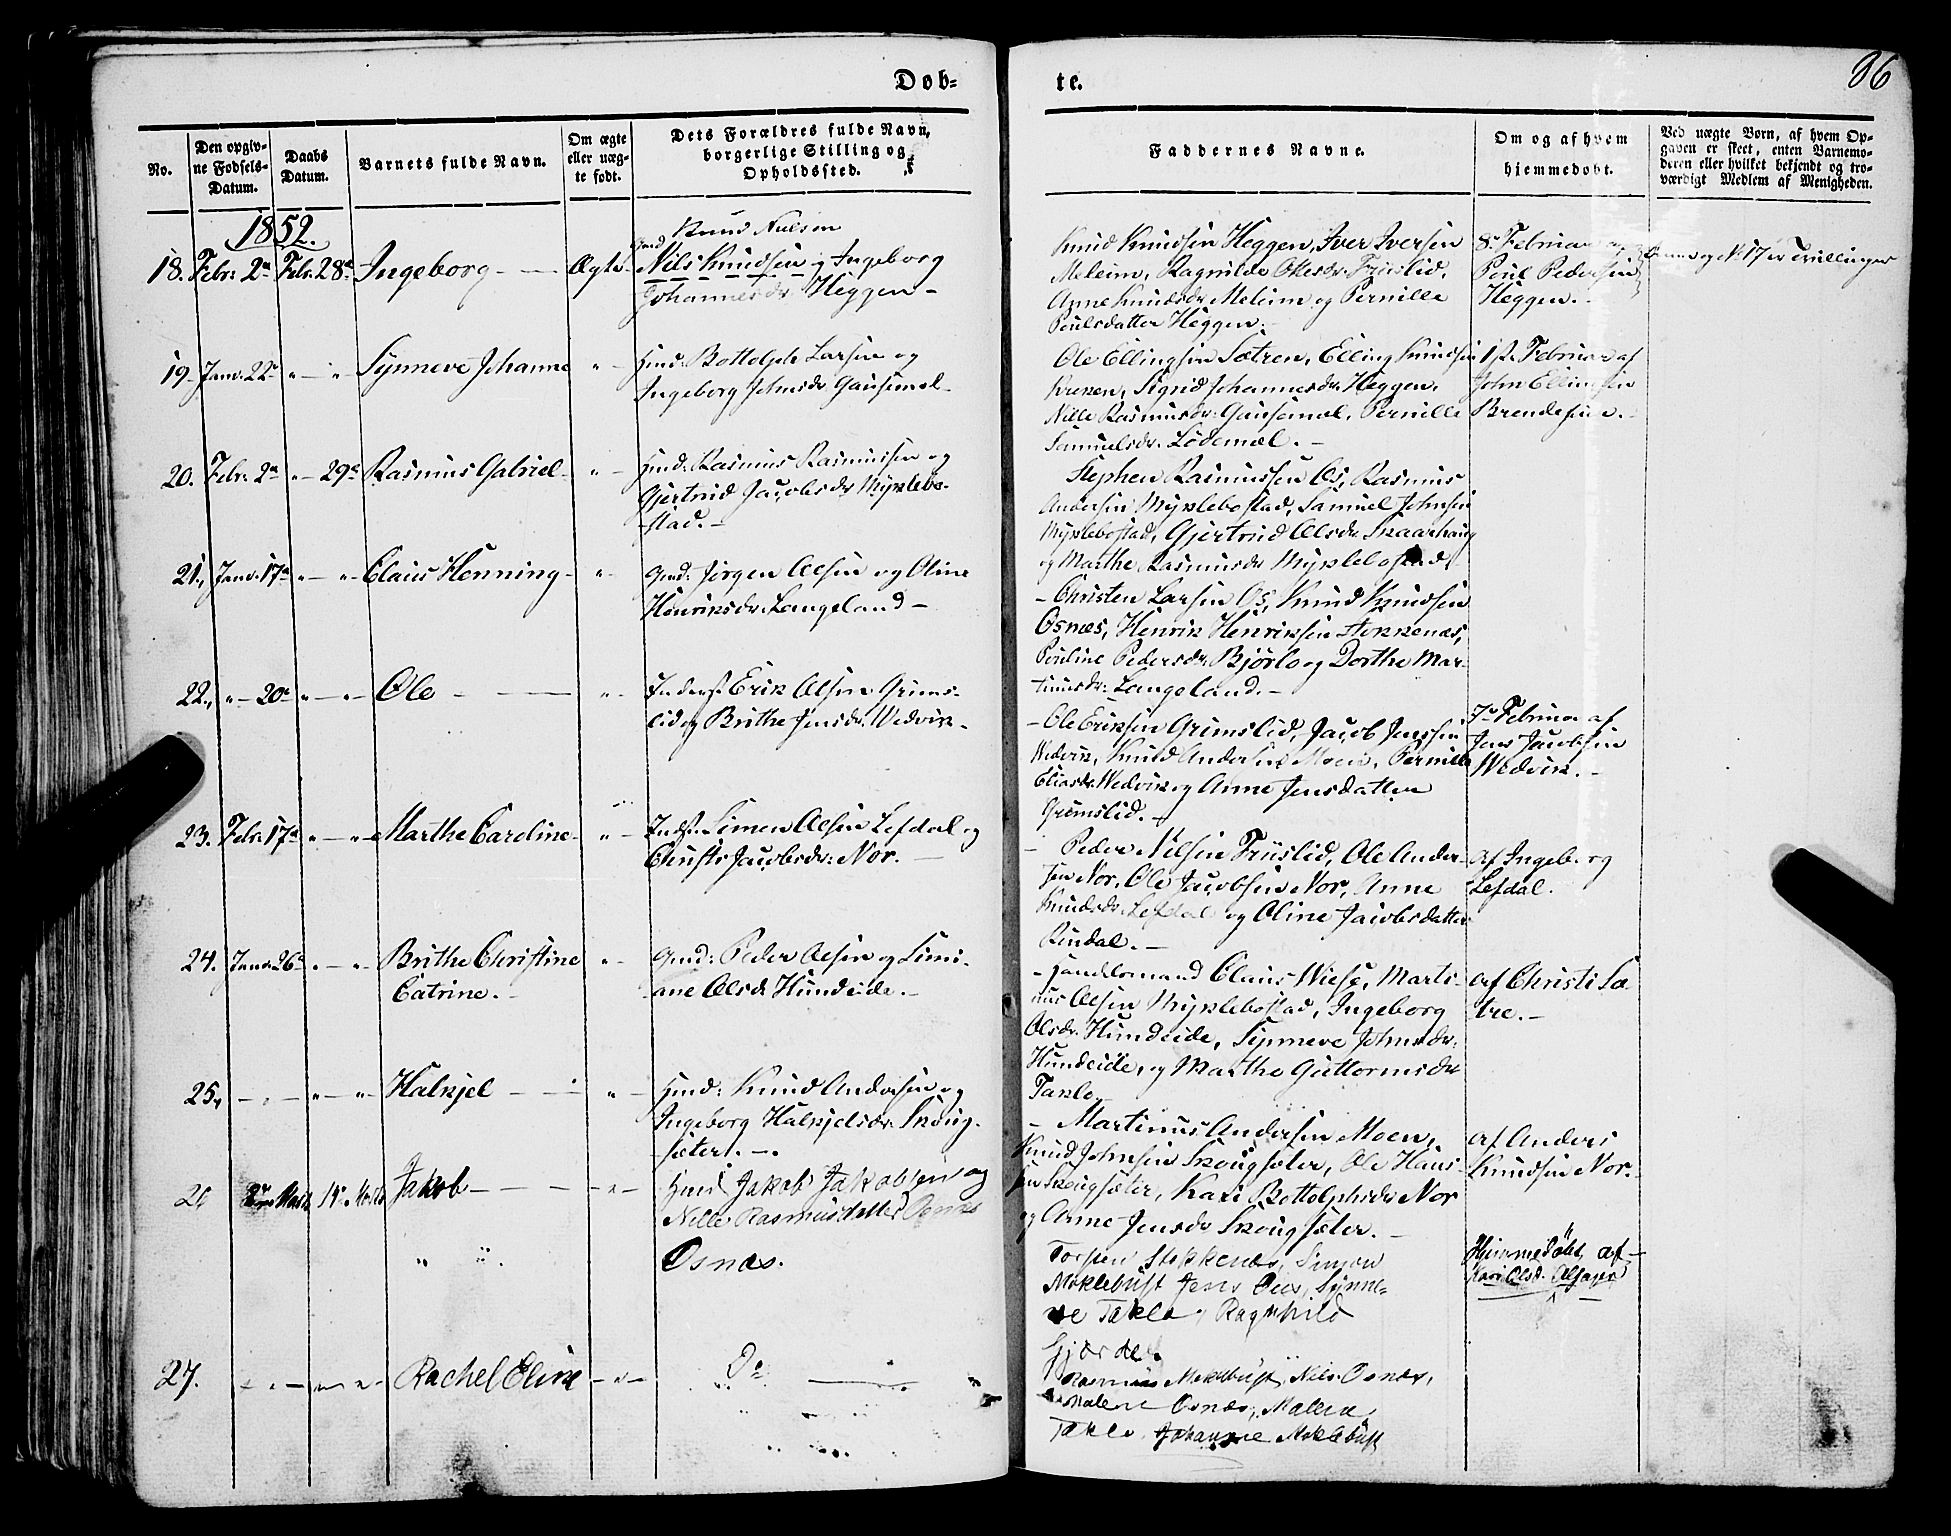 Døb-
te.
86
No.
Den opgiv-
ne Fødsels-
Datum.
Daabs
Datum.
Barnets fulde Navn.
Om ægte
eller uæg-
te født.
Dets Forældres fulde Navn,
borgerlige Stilling og
Opholdssted.
Faddernes Navne.
Om og af hvem
hjemmedøbt.
Ved uægte Børn, af hvem Op-
gaven er skeet, enten Barnemo-
deren eller hvilket bekjendt og tro-
værdigt Medlem af Menigheden.
1852.
18. Febr: 2de Febr. 28de Ingeborg Ægte
Knud Nielsen
Nils Knudsen og Ingeborg
Johannesdr. Heggen
Knud Knudsen Heggen, Iver Iversen
Meleim, Ragnilde Frøislid,
Anne Knudsdr. Meleim og Pernille
Poulsdatter Heggen.
8de Februar
Poul Pedersen
Heggen.
og No 17 er Trillinger
19. Janr. 22de " " Synneve Johanne "
Hmd: Bottolph Larsen og
Ingeborg Johnsdr. Gausemel
Ole Ellingsen Sætren, Elling Knudsen
Sigrid Johannesdr. Heggen,
Nille Rasmusdr. Gausemel, Pernille
Samuelsdr. Lødemel.
1ste Februar af
John Ellingsen
20. Febr. 2de " 29de Rasmus Gabriel "
Hmd: Rasmus Rasmussen og
Gjertrud Jacobsdr Myklebo-
stad.
Stephen Rasmussen Os, Rasmus
Andersen Myklebostad, Samuel Johnsen
Myklebostad, Gjertrud Olsdr. Skaarhaug
og Marthe Rasmusdr Myklebostad
21. Janr. 17de " " Claus Henning "
Gmd: Jørgen Olsen og Oline
Henriksdr. Langeland
Christen Larsen Os, Knud Knudsen
Osnæs, Henrik Henriksen Stokkenæs,
Pouline Pedersdr. Bjørlo og Dorthe Mar-
tinusdr: Langeland.
22. " 20de " " Ole "
Inderst Erik Olsen Grims-
lid og Brithe Jensdr. Wedvik.
Ole Eriksen Grimslid, Jacob Jensen
Wedvik, Knud Andersen Moen, Pernille
Eliasdr. Wedvik og Anne Jensdatter
Grimslid.
7de Februar af
Jens Jacobsen
Wedvik.
23. Febr. 17de " " Marthe Caroline "
Indst. Simen Olsen Lefdal og
Jacobsdr: Nor.
Peder Nilsen Frøislid, Ole Ander-
sen Nor, Ole Jacobsen Nor, Anne
Knudsdr. Lefdal og Oline Jacobsdatter
Rindal.
af Ingeborg
Lefdal.
24. Janr. 26de " " Brithe Christine "
Catrine.
Gmd: Peder Olsen og Simi-
ane Olsdr Hundeide.
Handlsmand Claus Wiese, Marti-
nus Olsen Myklebostad, Ingeborg
Olsdr. Hundeide, Synneve Johnsdr.
Hundeide, og Marthe Guttormsdr
Taklo
af Christi Sæ-
tre.
25. " " " Halkjel "
Hmd: Knud Andersen og
Ingeborg Halkjelsdr. Skoug-
sæter.
Martinus Andersen Moen,
Knud Johnsen Skougsæter, Ole Hans-
sen Skougsæter, Kari Bottolphsdr Nor
og Anne Jensdr Skougsæter.
af Anders
Knudsen Nor.
26 Jakob "
Hmd Jakob Jakobsen og
Nille Rasmusdatter Osnæs
Osnæs.
Torsten Stokkenæs, Simon
Moklebust Jens Synne-
ve Taklo, Ragnhild
Gjærde.
Hjemmedøbt af
Kari Olsd.
27. " " Rachel Eline "
Do
Rasmus Moklebust, Nils Osnæs,
Malene Osnæs, Malena
Taklo Johanne Moklebust